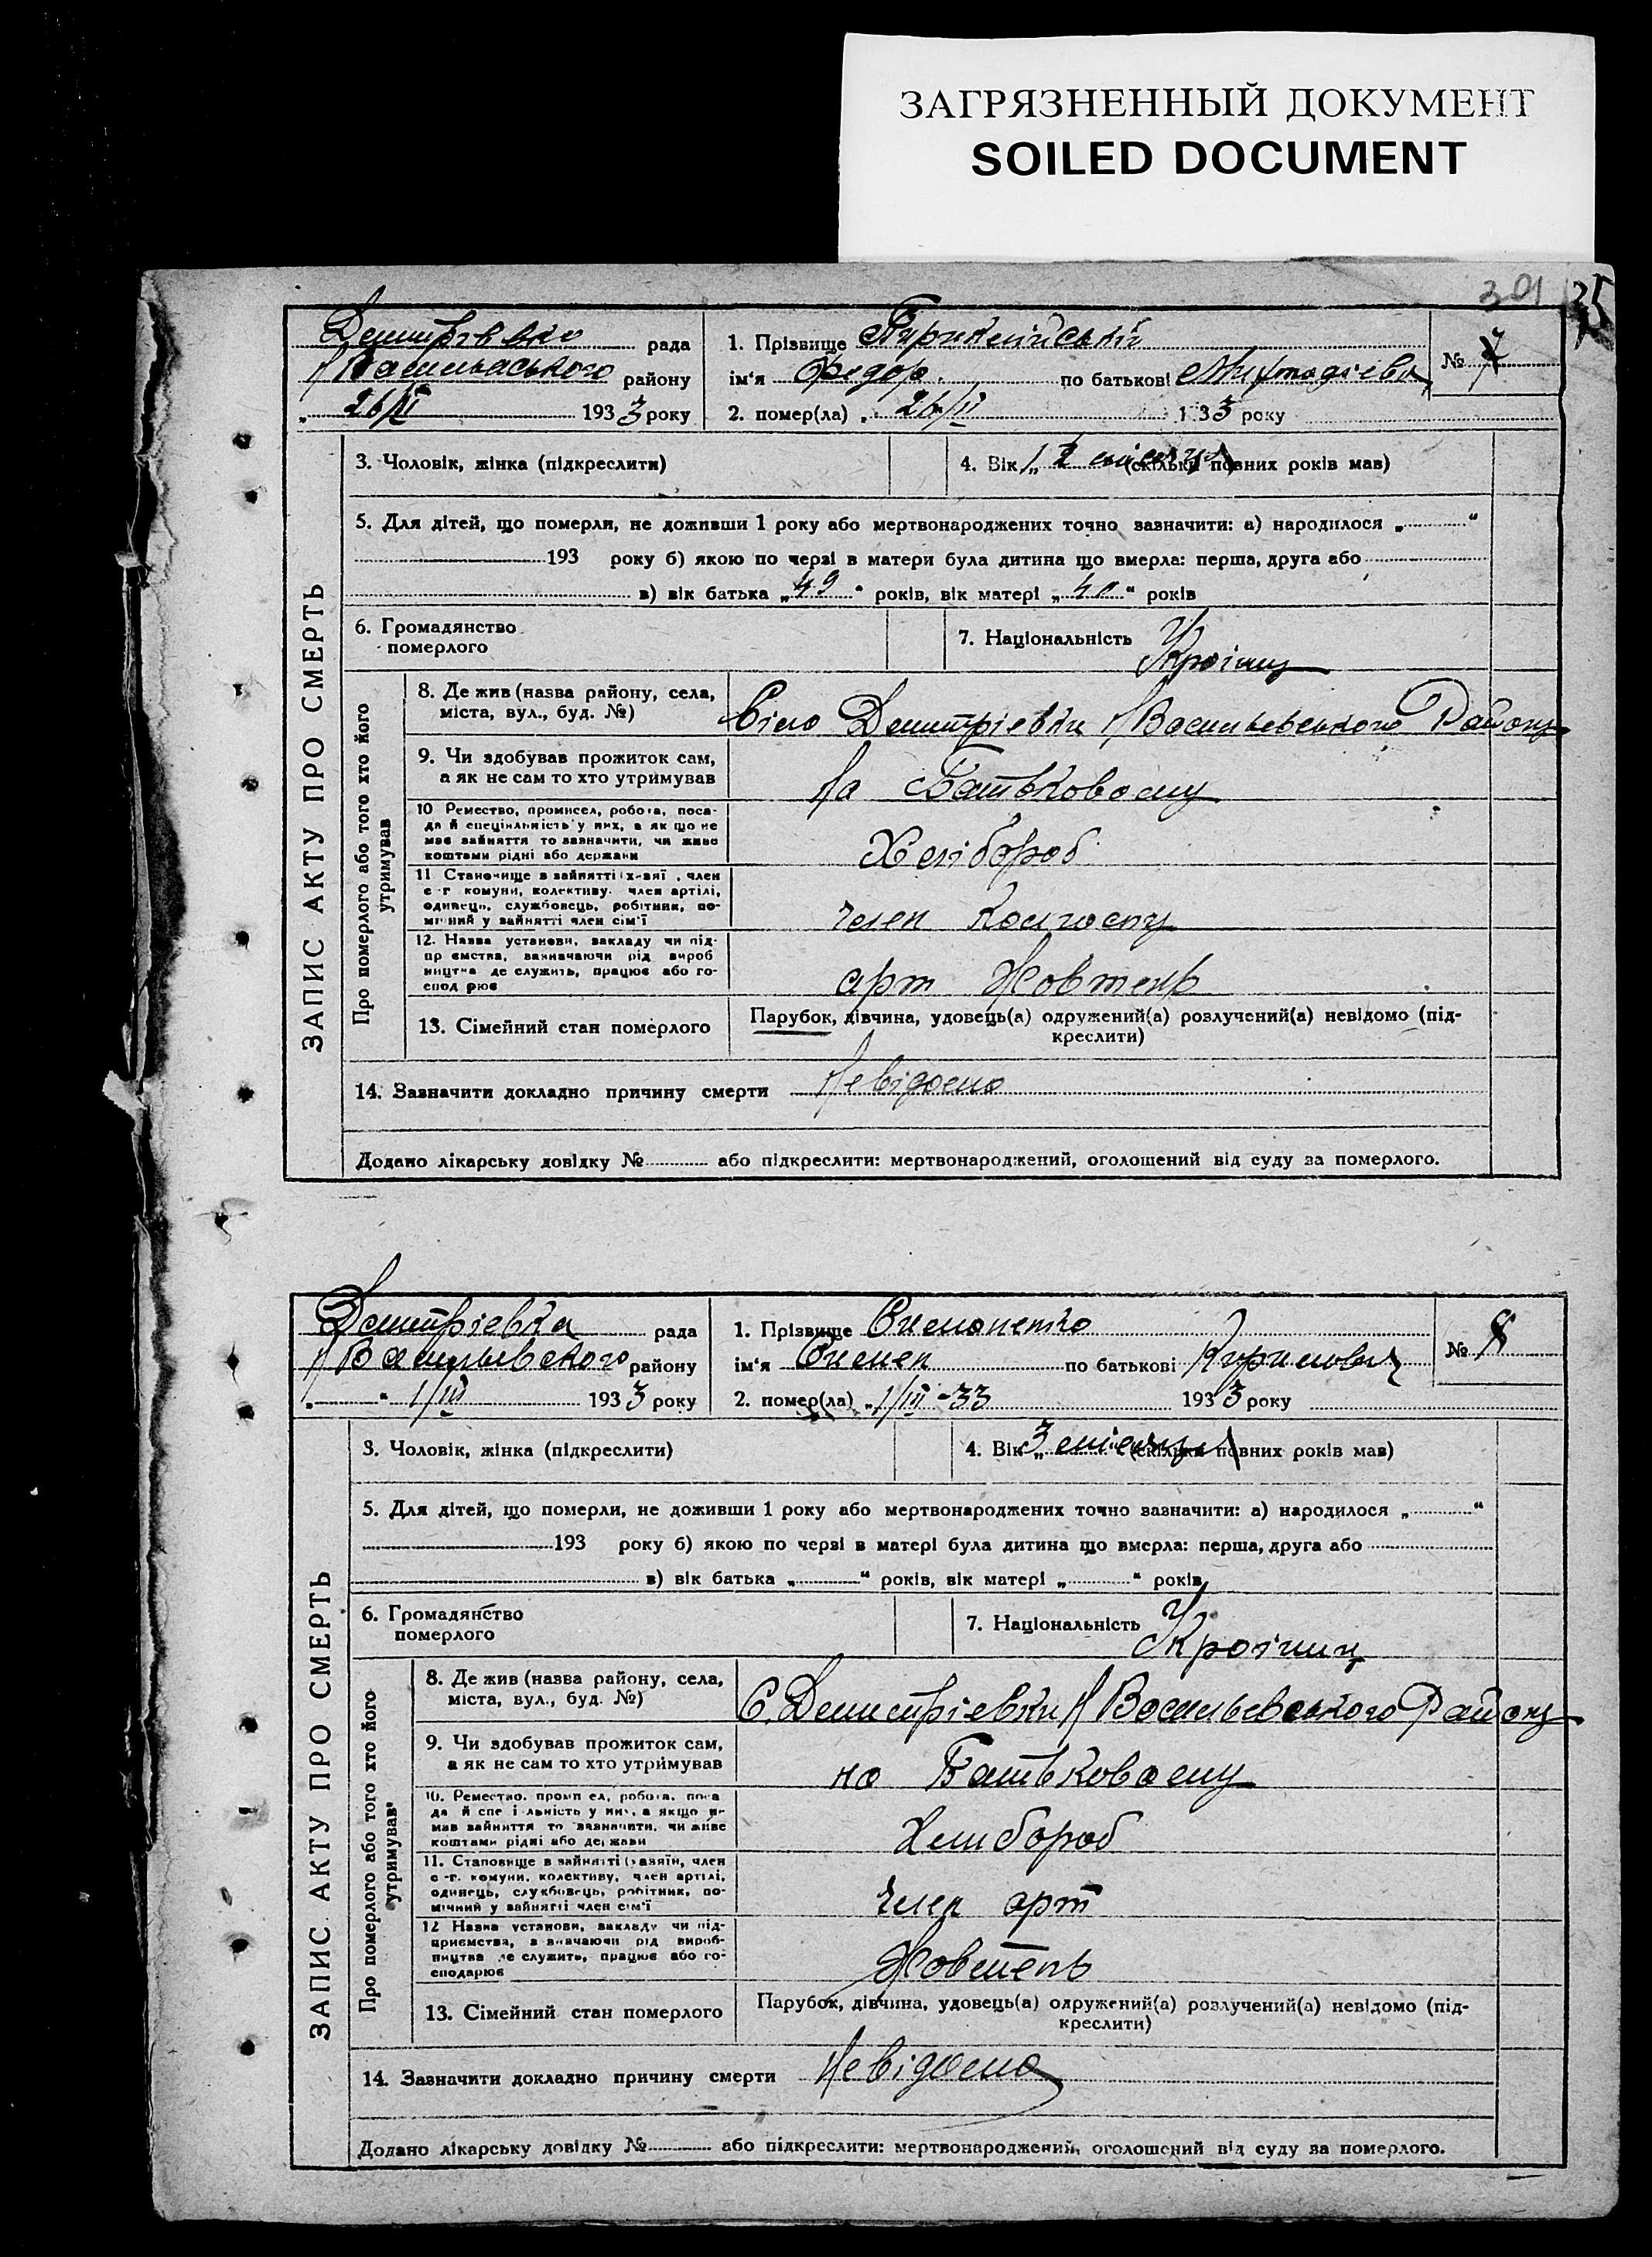 ЗАГРЯЗНЕННЫЙ ДОКУМЕНТ
SOILED DOCUMENT
301 35
рада 1. Прізвище № 7
району ім'я Федор. по батькові
26/II 1933 року 2. помер(ла) „ 26/II 1933 року
3. Чоловік, жінка (підкреслити) 4. Вік „ (скільки повних років мав)
5. Для дітей, що померли, не доживши 1 року або мертвонароджених точно зазначити: а) народилося „ “
193 року б) якою по черзі в матери була дитина що вмерла: перша, друга або
в) вік батька „ 49 “ років, вік матері „ 40 “ років
6. Громадянство померлого 7. Національність Украінц
ЗАПИС АКТУ ПРО СМЕРТЬ
Про померлого або того хто його утримував
8. Де жив (назва району, села, міста, вул., буд. №) Сіло Демитріевки Н Васильевського Району
9. Чи здобував прожиток сам, а як не сам то хто утримував На Батьковому
10 Ремество, промисел, робота, посада й спеціяльність у них, а як що не має зайняття то зазначити, чи живе коштами рідні або держави Хлібороб
11 Становище в зайнятті (х-зяї , член с-г комуни, колективу. член артілі, одинець, службовець, робітник, помічний у зайнятті член сім'ї член Колгоспу
12. Назва установи, закладу чи підприємства, зазначаючи рід виробництва де служить, працює або господарює арт Жовтень
13. Сімейний стан померлого Парубок, дівчина, удовець(а) одружений(а) розлучений(а) невідомо (підкреслити)
14. Зазначити докладно причину смерти Невідомо
Додано лікарську довідку № або підкреслити: мертвонароджений, оголошений від суду за померлого.
Демитріевка рада 1. Прізвище № 8
Н Васильевського району ім'я Семен по батькові Кирилович
„ “ 1/III 1933 року 2. помер(ла) „ 1/III-33 1933 року
3. Чоловік, жінка (підкреслити) 4. Вік „ 3 місяці (скільки повних років мав)
5. Для дітей, що померли, не доживши 1 року або мертвонароджених точно зазначити: а) народилося „ “
193 року б) якою по черзі в матері була дитина що вмерла: перша, друга або
в) вік батька „ “ років, вік матері „ “ років
6. Громадянство померлого 7. Національність Украінц
ЗАПИС АКТУ ПРО СМЕРТЬ
Про померлого або того хто його утримував
8. Де жив (назва району, села, міста, вул., буд. №) С. Демитріевки Н Васильевського Району
9. Чи здобував прожиток сам, а як не сам то хто утримував на Батьковому
10. Ремество, промисел, робота, посада й спеціяльність у них, а якщо немає зайняття то зазначити, чи живе коштами рідні або держави Хлибороб
11. Становище в зайнятті (хазяїн, член с-г. комуни, колективу, член артілі, одинець, службовець, робітник, помічний у зайнятті член сім'ї член арт
12 Назва установи, закладу чи підприємства, зазначаючи рід виробництва де служить, працює або господарює Жовтень
13. Сімейний стан померлого Парубок, дівчина, удовець(а) одружений(а) розлучений(а) невідомо (підкреслити)
14. Зазначити докладно причину смерти Невідомо
Додано лікарську довідку № або підкреслити: мертвонароджений, оголошений від суду за померлого.